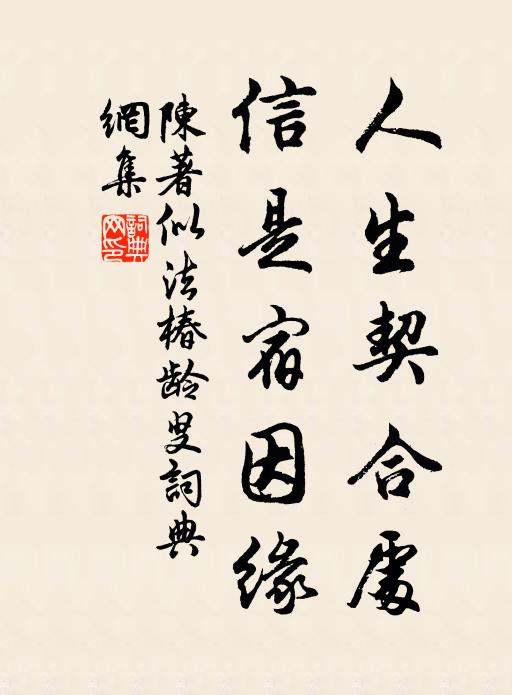 人生契合處
信是宿因緣
陳著似法椿齡叟詞典
網集
詞典網印